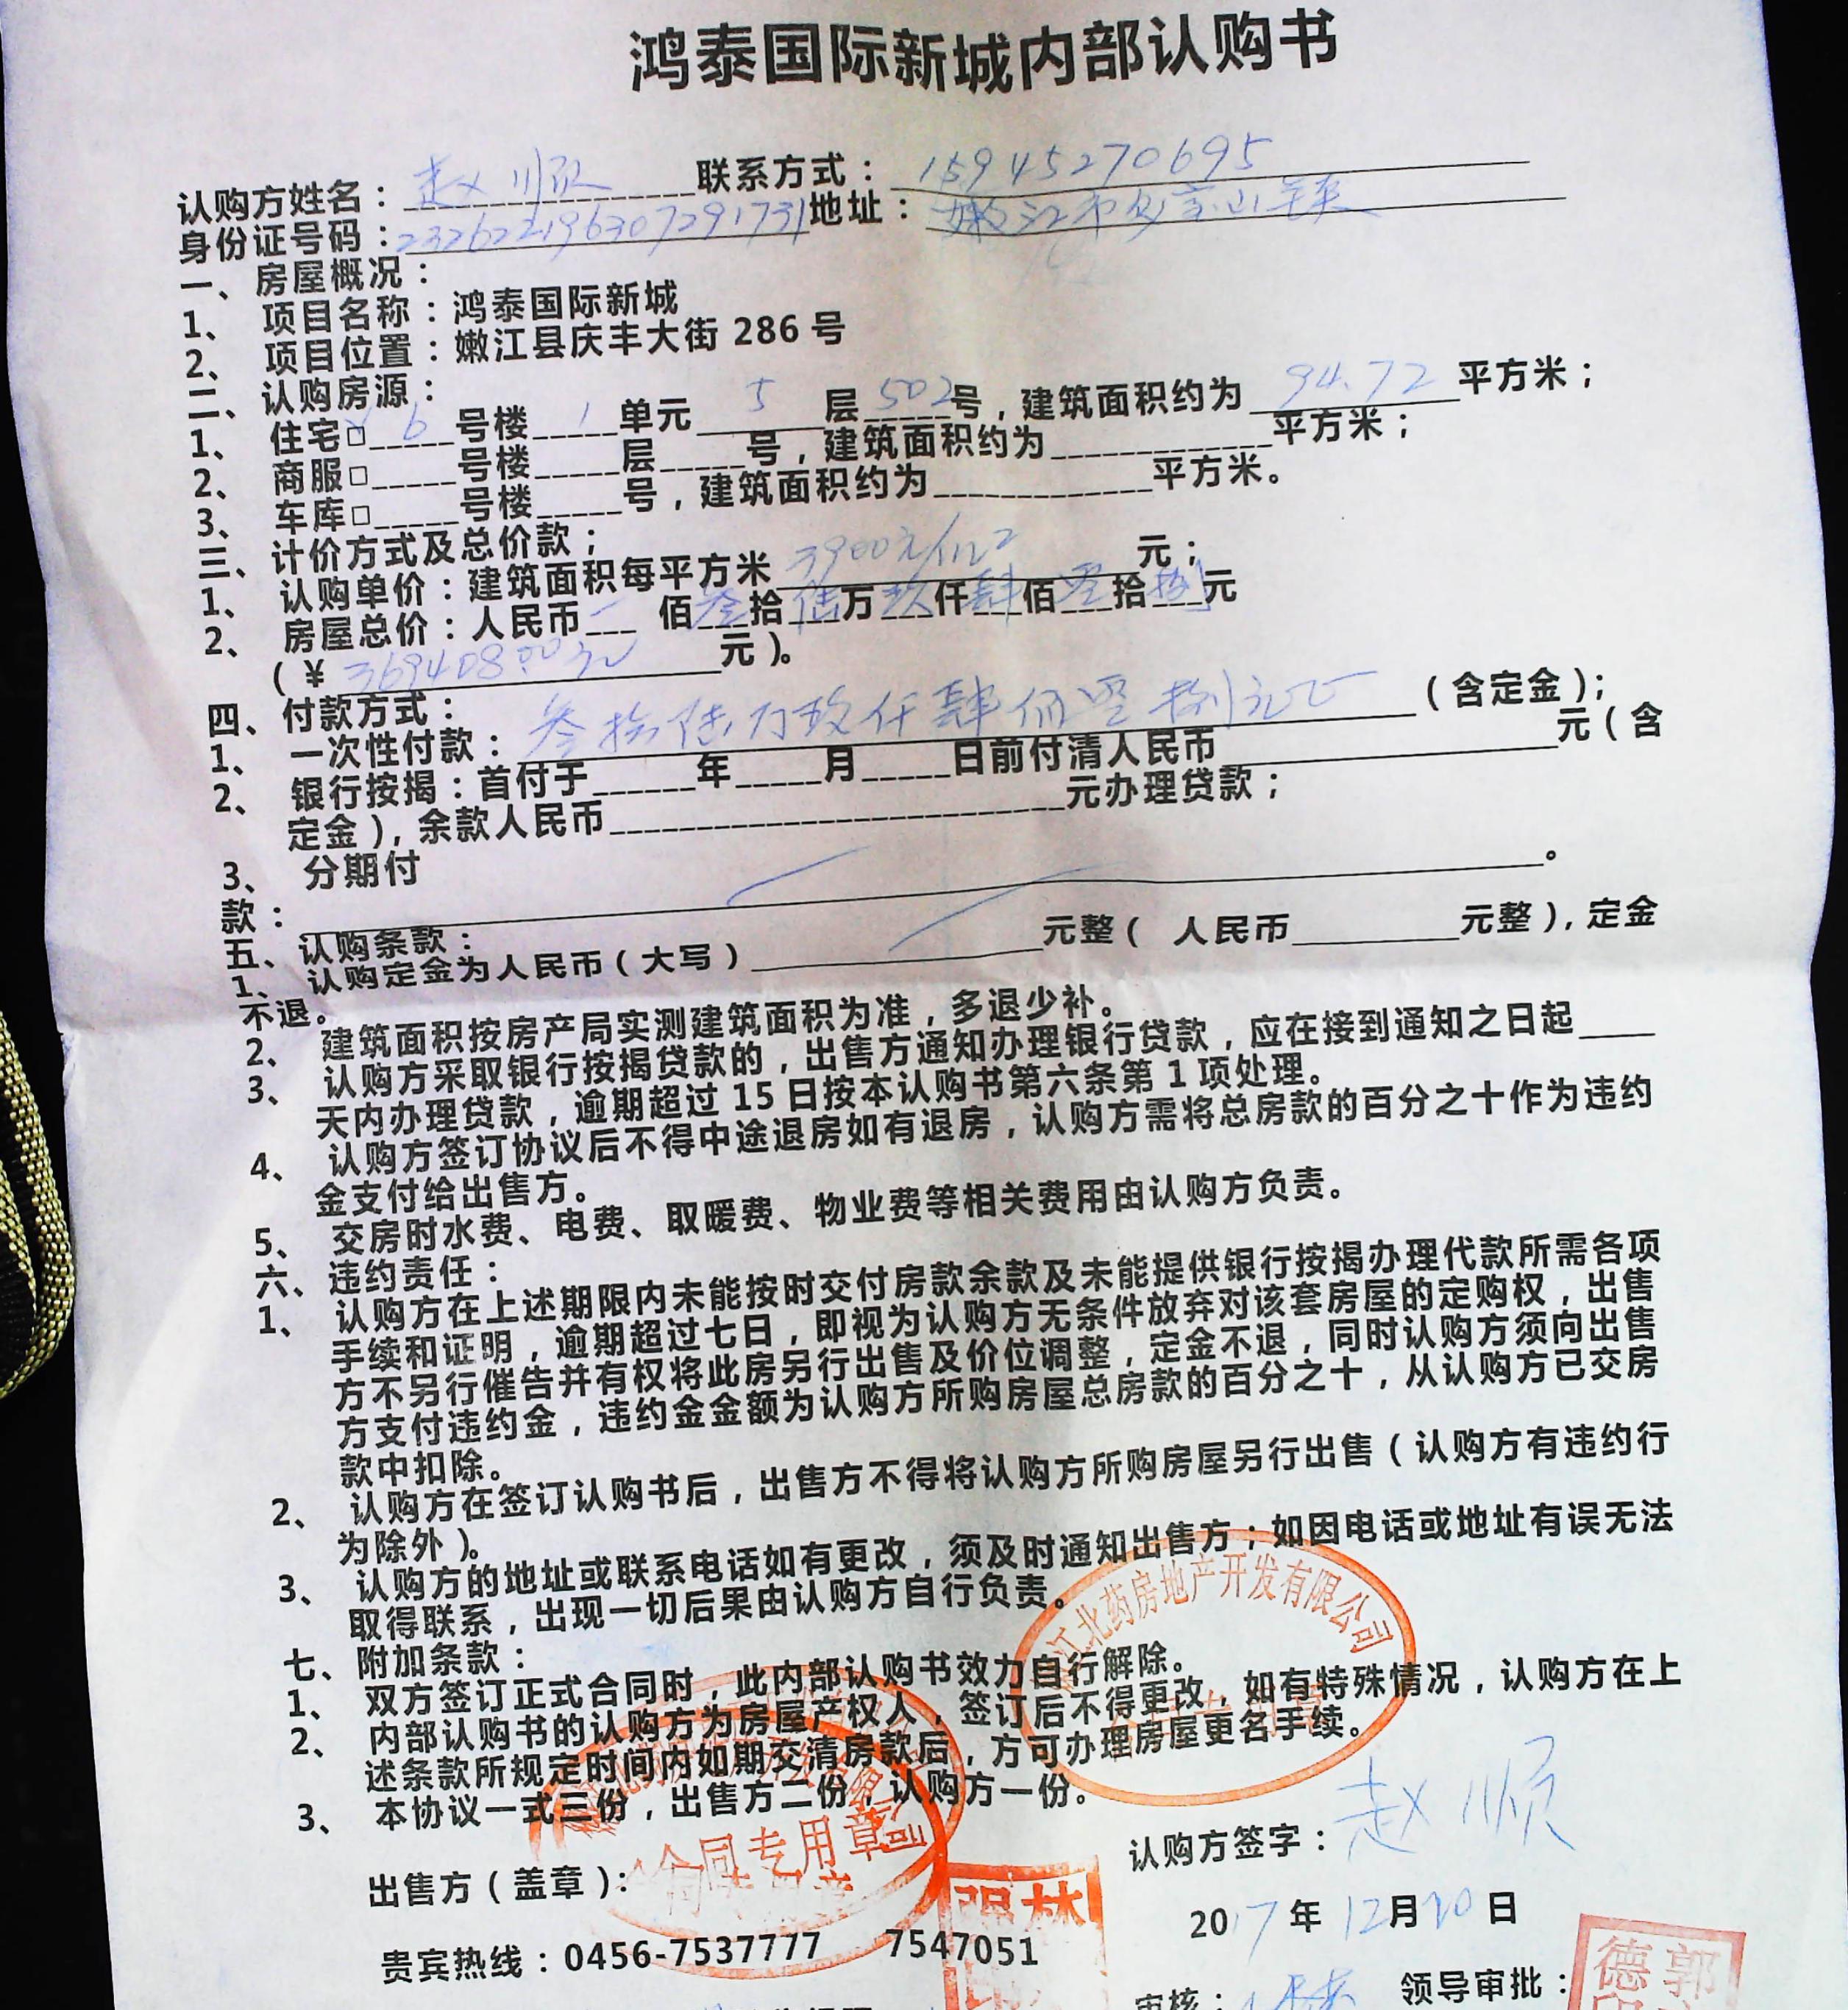 鸿泰国际新城内部认购书
认购方姓名：赵顺 联系方式：15945270695
身份证号码：232622196307291731 地址：嫩江市多宝山
一、房屋概况：
1、 项目名称：鸿泰国际新城
2、 项目位置：嫩江县庆丰大街 286 号
二、认购房源：
1、 住宅□ 6 号楼 1 单元 5 层 502 号，建筑面积约为 94.72 平方米；
2、 商服□_____号楼_____层_____号，建筑面积约为_____________平方米；
3、 车库□_____号楼_____号，建筑面积约为_____________平方米。
三、计价方式及总价款；
1、 认购单价：建筑面积每平方米 3900元/m2 元；
2、 房屋总价：人民币 佰叁拾陆万玖仟肆佰零拾捌元
（￥369408.00元 元）。
四、付款方式：
1、 一次性付款：叁拾陆万玖仟肆佰零捌元正（含定金）；
2、 银行按揭：首付于______年_____月_____日前付清人民币____________________元（含
定金），余款人民币__________________________元办理贷款；
3、 分期付
款： 。
五、认购条款：
1、 认购定金为人民币（大写） 元整（ 人民币 元整），定金
不退。
2、 建筑面积按房产局实测建筑面积为准，多退少补。
3、 认购方采取银行按揭贷款的，出售方通知办理银行贷款，应在接到通知之日起____
天内办理贷款，逾期超过 15 日按本认购书第六条第 1 项处理。
4、 认购方签订协议后不得中途退房如有退房，认购方需将总房款的百分之十作为违约
金支付给出售方。
5、 交房时水费、电费、取暖费、物业费等相关费用由认购方负责。
六、违约责任：
1、 认购方在上述期限内未能按时交付房款余款及未能提供银行按揭办理代款所需各项
手续和证明，逾期超过七日，即视为认购方无条件放弃对该套房屋的定购权，出售
方不另行催告并有权将此房另行出售及价位调整，定金不退，同时认购方须向出售
方支付违约金，违约金金额为认购方所购房屋总房款的百分之十，从认购方已交房
款中扣除。
2、 认购方在签订认购书后，出售方不得将认购方所购房屋另行出售（认购方有违约行
为除外）。
3、 认购方的地址或联系电话如有更改，须及时通知出售方；如因电话或地址有误无法
取得联系，出现一切后果由认购方自行负责。
江北药房地产开发有限公司
七、附加条款：
1、 双方签订正式合同时，此内部认购书效力自行解除。
2、 内部认购书的认购方为房屋产权人 签订后不得更改，如有特殊情况，认购方在上
述条款所规定时间内如期交清房款后，方可办理房屋更名手续。
3、 本协议一式三份，出售方二份，认购方一份。
合同专用章
出售方（盖章）： 认购方签字：赵顺
2017 年 12 月 20 日
贵宾热线：0456-7537777 7547051
林
审核： 领导审批：
郭
德